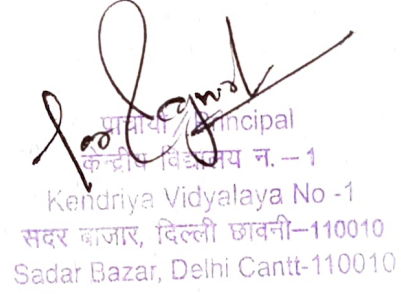 प्राचार्य / Principal
केन्द्रीय विद्यालय न. – 1
Kendriya Vidyalaya No -1
सदर बाजार, दिल्ली छावनी–110010
Sadar Bazar, Delhi Cantt-110010